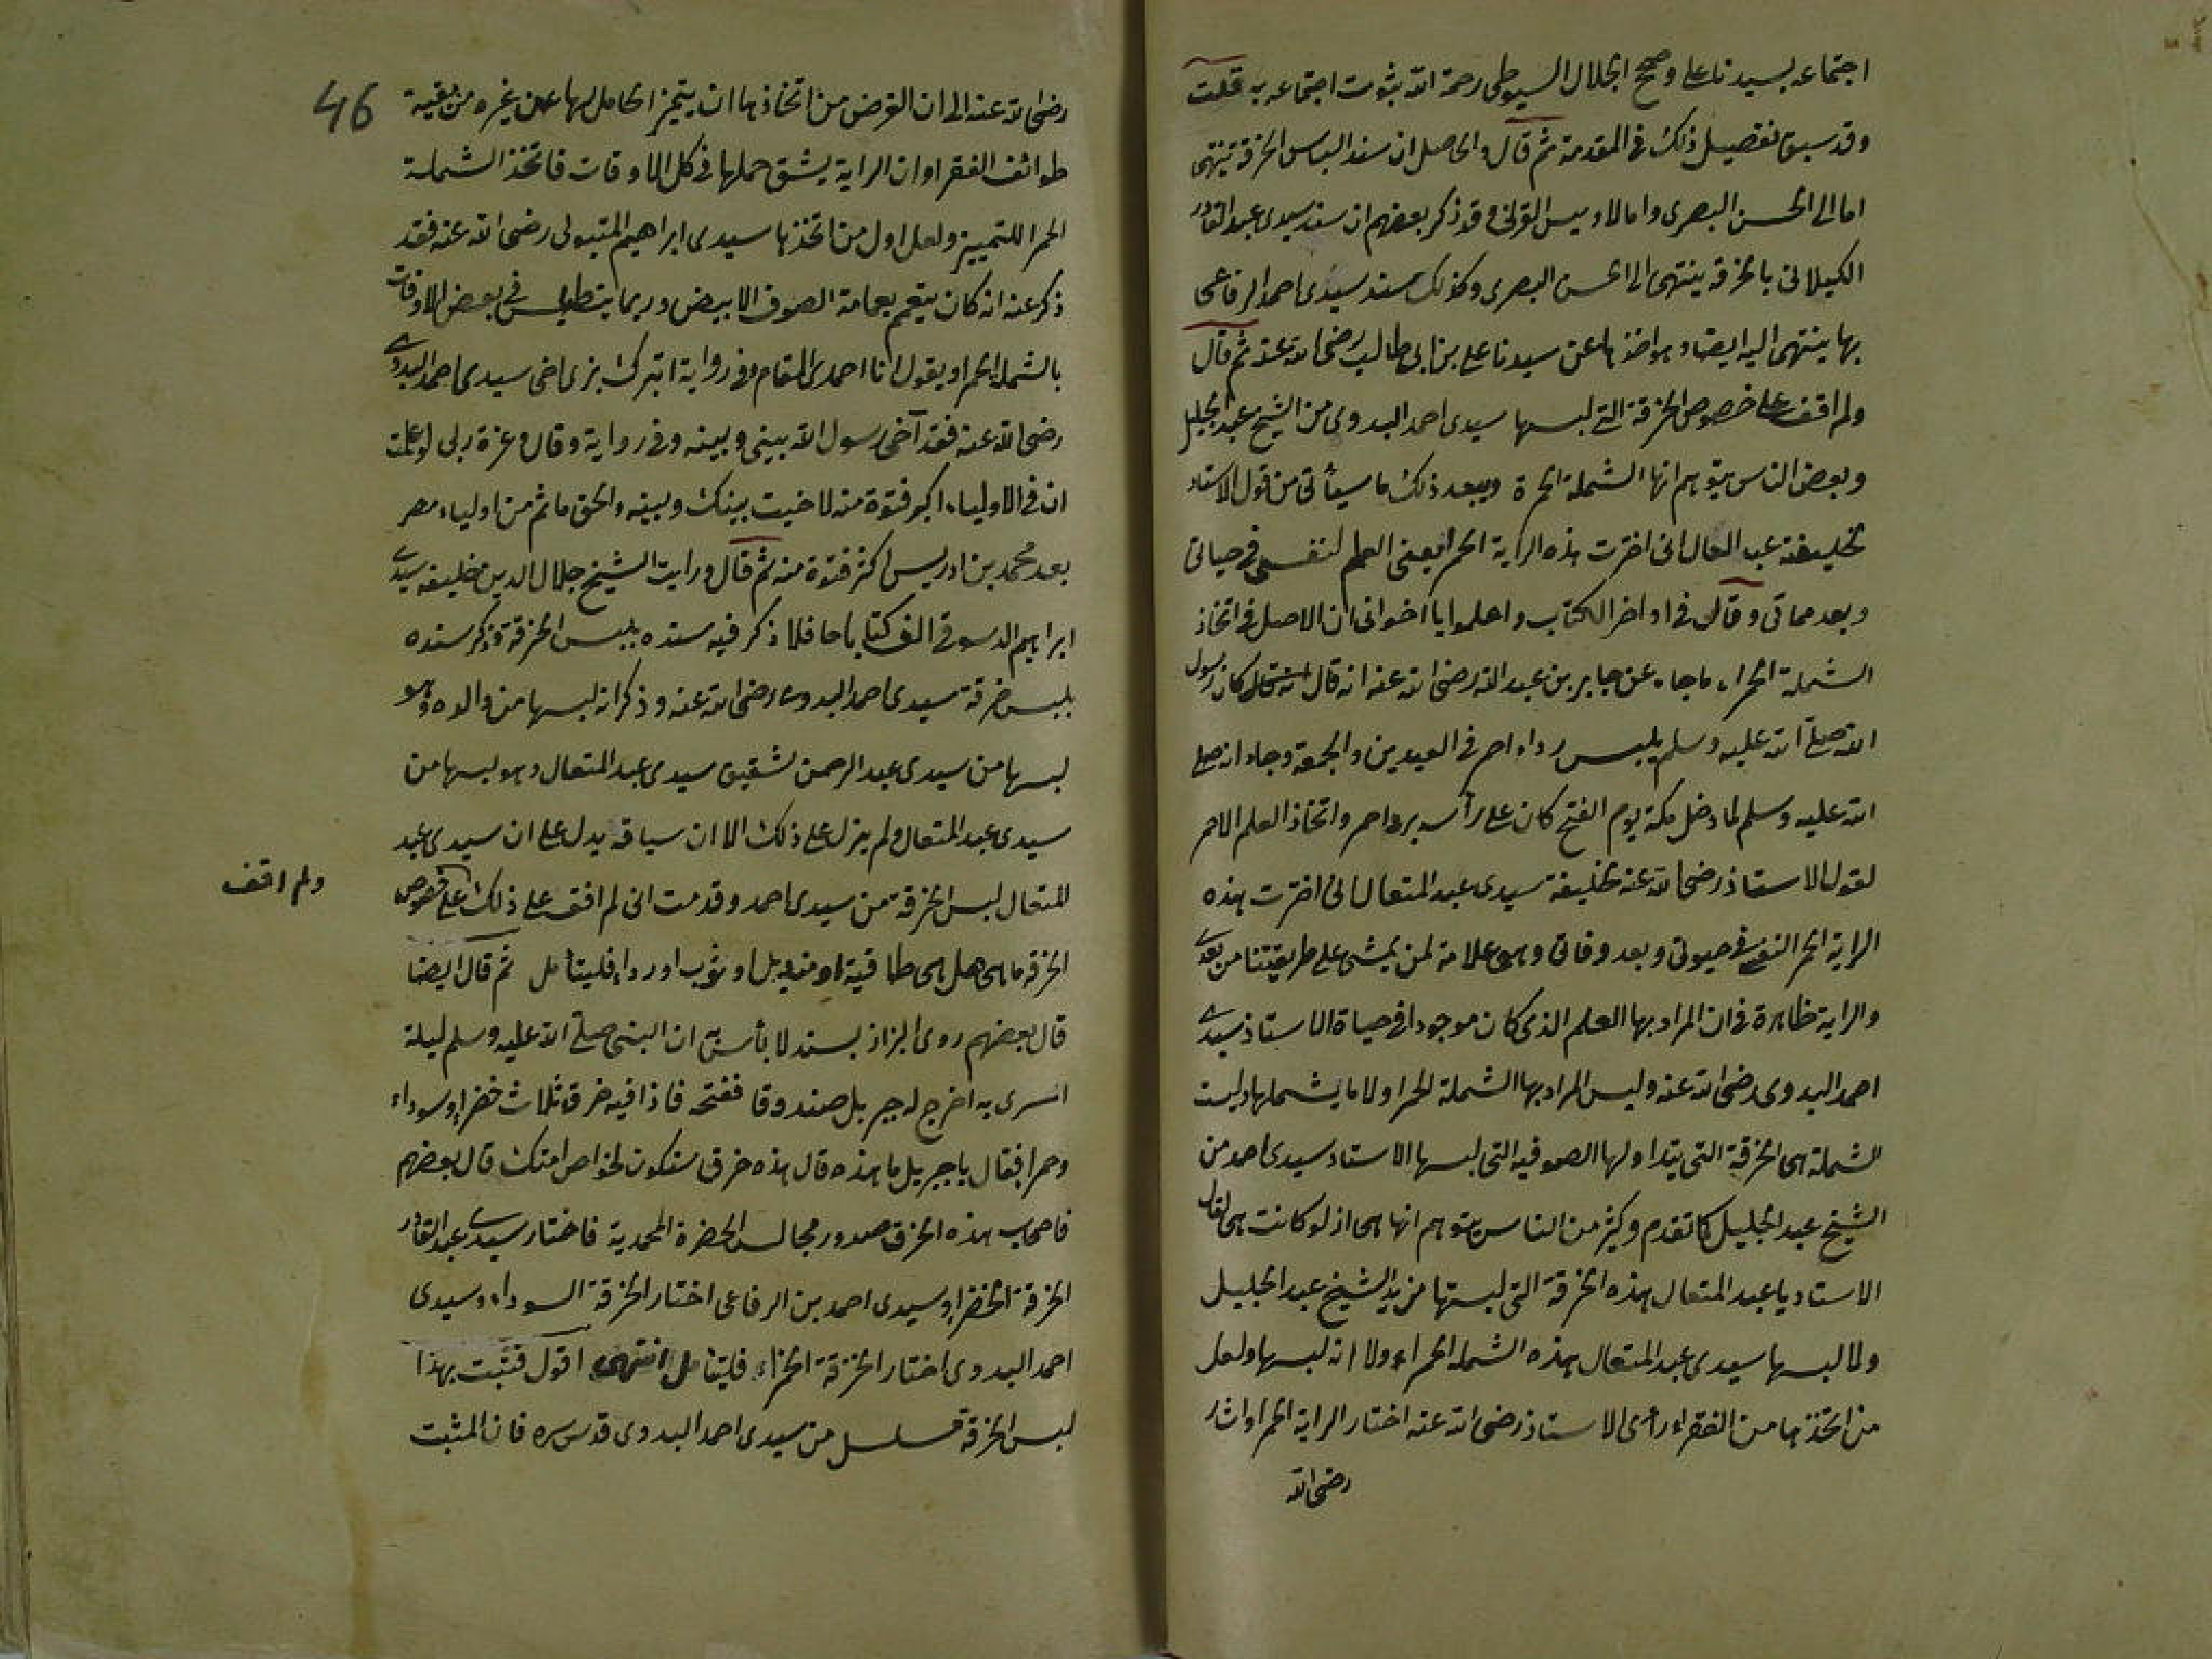 اجتماعه بسيدنا على وصحح الجلال السيوطى رحمة الله بثوت اجتماعه به قلت
وقد سبق تفصيل ذلك فى المقدمة ثم قال والحاصل ان سند الباس الخرقة ينتهى
اما الى الحسن البصرى واما لاويس القرنى وقد ذكر بعضهم ان سند سيدى عبد القادر
الكيلانى بالخرقة ينتهى الى الحسن البصرى وكذلك سند سيدى احمد الرفاعى
بها ينتهى اليه ايضا وهو اخذها عن سيدنا على بن ابى طالب رضى الله عنه ثم قال
ولم اقف على خصوص الخرقة التى لبسها سيدى احمد البدوى من الشيخ عبد الجليل
وبعض الناس يتوهم انها الشملة الحمرة ويبعد ذلك ما سيأتى من قول الاستاد
لخليفته عبد العال انى اخترت هذه الراية الحمرا يعنى العلم لنفسى فى حياتى
وبعد مماتى وقال فى اواخر الكتاب واعلموا يا اخوانى ان الاصل فى اتخاذ
الشملة الحمراء ما جاء عن جابر بن عبد الله رضى الله عنه انه قال كان رسول
الله صلى الله عليه وسلم يلبس رداء احمر فى العيدين والجمعة وجاء انه صلى
الله عليه وسلم لما دخل مكة يوم الفتح كان على رأسه برد احمر واتخاذ العلم الاحمر
لقول الاستاذ رضى الله عنه لخليفة سيدى عبد المتعال انى اخترت هذه
الراية الحمرا لنفسى فى حيوتى وبعد وفاتى وهى علامة لمن يمشى على طريقتنا من بعدى
والراية ظاهرة فى ان المراد بها العلم الذى كان موجودا فى حياة الاستاذ سيدى
احمد البدوى رضى الله عنه وليس المراد بها الشملة الحمرا ولا ما يشملها وليست
الشملة هى الخرقة التى يتداولها الصوفيه التى لبسها الاستاد سيدى احمد من
الشيخ عبد الجليل كما تقدم وكثير من الناس يتوهم انها هى اذ لو كانت هى لقال
الاستاد يا عبد المتعال هذه الخرقة التى لبستها من يد الشيخ عبد الجليل
ولما لبسها سيدى عبد المتعال هذه الشملة الحمراء ولا انه لبسها ولعل
من اتخذها من الفقراء رأى الاستاذ رضى الله عنه اختار الراية الحمرا واشار
رضى الله
46
رضى الله عنه الى ان الغرض من اتخاذها ان يتميز الحامل لها عن غيره من بقية
طوائف الفقرا وان الراية يشق حملها فى كل الاوقات فاتخذ الشملة
الحمرا للتمييز ولعل اول من اتخذها سيدى ابراهيم المتبولى رضى الله عنه فقد
ذكر عنه انه كان يتعمم بعمامة الصوف الابيض وربما يتطيلس فى بعض الاوقات
بالشملة الحمرا ويقول انا احمدى المقام وفى رواية اتبرك بزى اخى سيدى احمد البدوى
رضى الله عنه فقد آخى رسول الله بينى وبينه وفى رواية وقال وعزة ربى لو علمت
ان فى الاولياء اكبر فتوة منه لاخيت بينك وبينه والحق ما ثم من اولياء مصر
بعد محمد بن ادريس اكثر فتوة منه ثم قال ورايت الشيخ جلال الدين خليفه سيدى
ابراهيم الدسوقى الف كتابا حافلا ذكر فيه سنده بلبس الخرقة وذكر سنده
بلبس خرقة سيدى احمد البدوى رضى الله عنه وذكر انه لبسها من والده وهو
لبسها من سيدى عبد الرحمن شقيق سيدى عبد المتعال وهو لبسها من
سيدى عبد المتعال ولم يزل على ذلك الا ان سياقه يدل على ان سيدى عبد
المتعال لبس الخرقة من سيدى احمد وقدمت انى لم اقف على ذلك على خصوص
ولم اقف
الخرقة ما هى هل هى طاقية او منديل او ثوب او رداء فليتأمل ثم قال ايضا
قال بعضهم روى البزاز بسند لا بأس به ان النبى صلى الله عليه وسلم ليلة
اسرى به اخرج له جبريل صندوقا ففتحه فاذا فيه خرق ثلاث خضراء وسوداء
وحمرا فقال يا جبريل ما هذه قال هذه خرق ستكون لخواص امتك قال بعضهم
فاصحاب هذه الخرق صدور مجالس الحضرة المحمدية فاختار سيدى عبد القادر
الخرقة الخضرا وسيدى احمد بن الرفاعى اختار الخرقة السوداء وسيدى
احمد البدوى اختار الخرقة الحمراء فليتامل انتهى اقول فثبت بهذا
لبس الخرقة مسلسل من سيدى احمد البدوى قدس سره فان المثبت